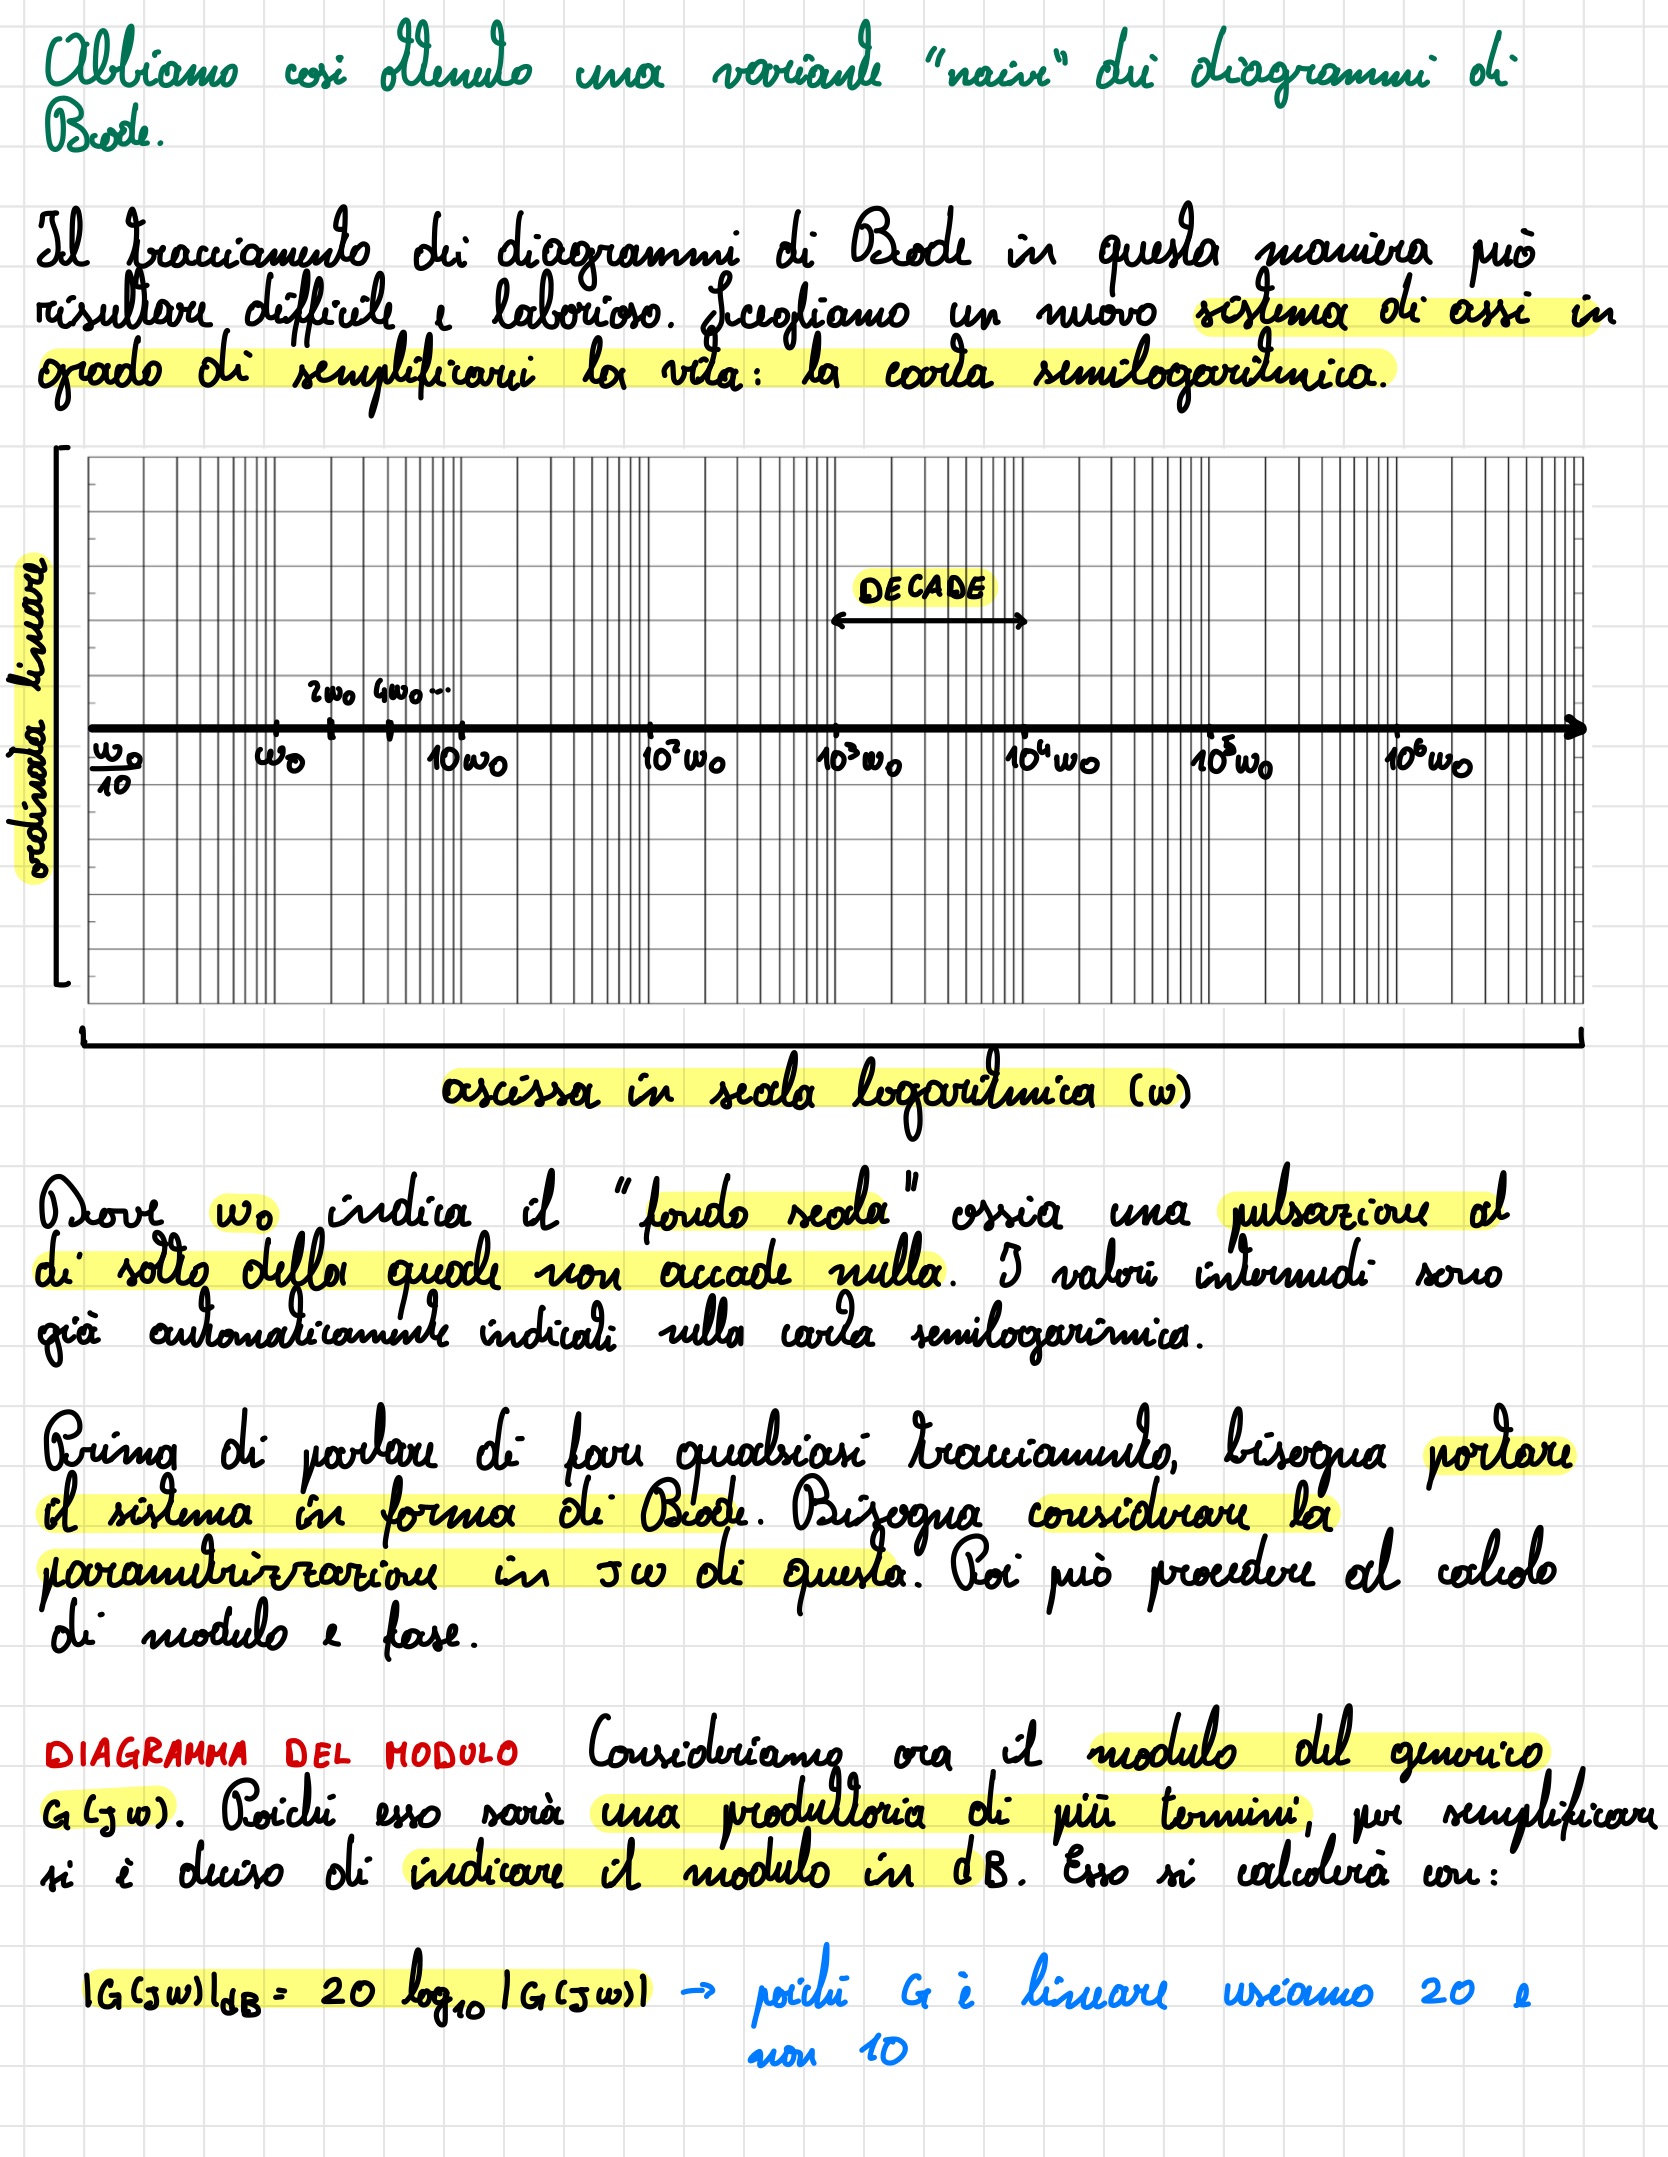 Abbiamo così ottenuto una variante "naive" dei diagrammi di
Bode.
Il tracciamento dei diagrammi di Bode in questa maniera può
risultare difficile e laborioso. Scegliamo un nuovo sistema di assi in
grado di semplificarci la vita: la carta semilogaritmica.
ordinata lineare
DECADE
2ω₀ 4ω₀ ...
ω₀/10 ω₀ 10ω₀ 10²ω₀ 10³ω₀ 10⁴ω₀ 10⁵ω₀ 10⁶ω₀
ascissa in scala logaritmica (ω)
Dove ω₀ indica il "fondo scala" ossia una pulsazione al
di sotto della quale non accade nulla. I valori intermedi sono
già automaticamente indicati nella carta semilogarimica.
Prima di parlare di fare qualsiasi tracciamento, bisogna portare
il sistema in forma di Bode. Bisogna considerare la
parametrizzazione in Jω di questa. Poi può procedere al calcolo
di modulo e fase.
DIAGRAMMA DEL MODULO Consideriamo ora il modulo del generico
G(Jω). Poiché esso sarà una produttoria di più termini, per semplificare
si è deciso di indicare il modulo in dB. Esso si calcolerà con:
|G(Jω)|dB = 20 log₁₀ |G(Jω)| → poiché G è lineare usiamo 20 e
non 10